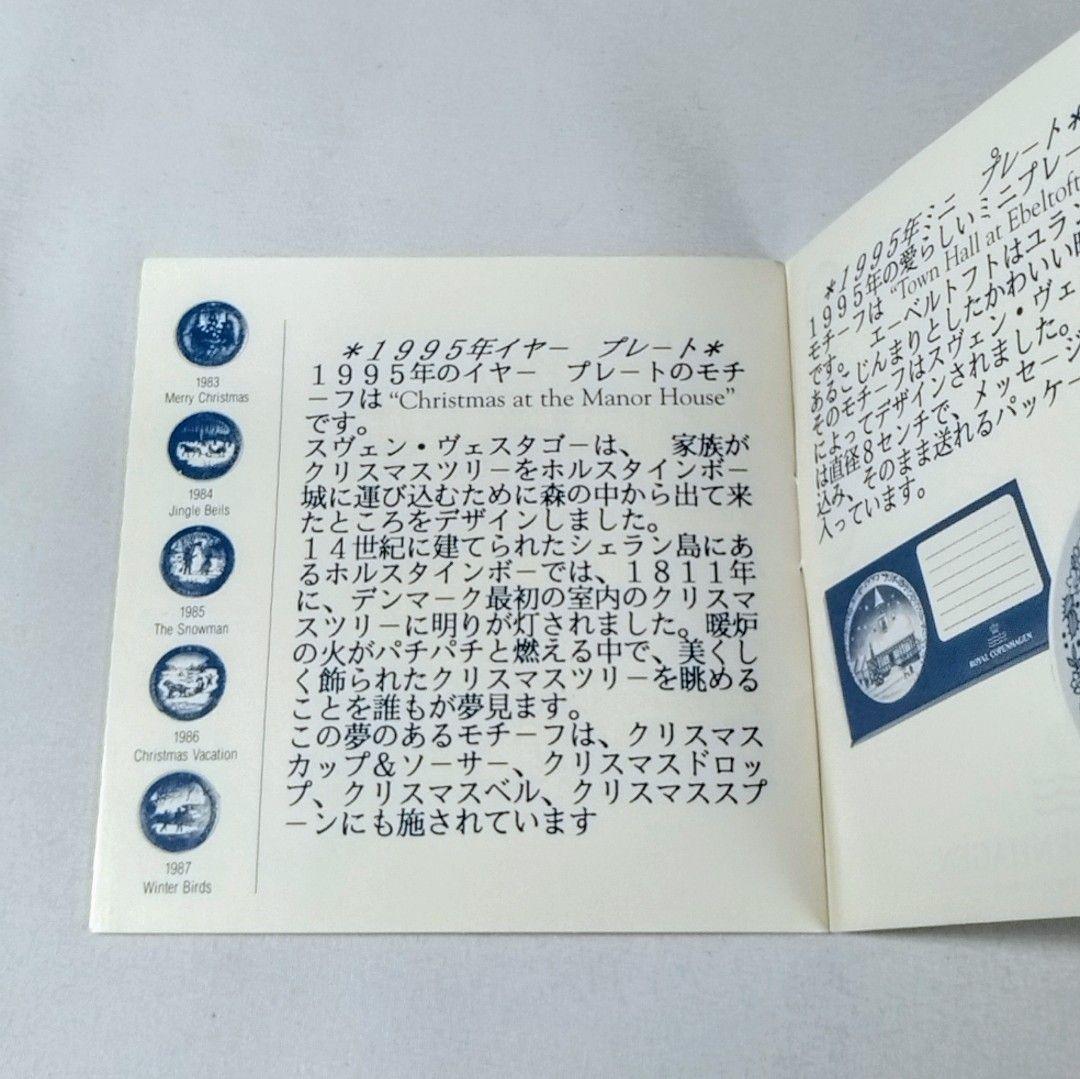 1983
Merry Christmas
1984
Jingle Bells
1985
The Snowman
1986
Christmas Vacation
1987
Winter Birds
＊１９９５年イヤー　プレート＊
１９９５年のイヤー　プレートのモチ
ーフは “Christmas at the Manor House”
です。
スヴェン・ヴェスタゴーは、　家族が
クリスマスツリーをホルスタインボー
城に運び込むために森の中から出て来
たところをデザインしました。
１４世紀に建てられたシェラン島にあ
るホルスタインボーでは、１８１１年
に、デンマーク最初の室内のクリスマ
スツリーに明りが灯されました。暖炉
の火がパチパチと燃える中で、美くし
く飾られたクリスマスツリーを眺める
ことを誰もが夢見ます。
この夢のあるモチーフは、クリスマス
カップ＆ソーサー、クリスマスドロッ
プ、クリスマスベル、クリスマススプ
ーンにも施されています
＊１９９５年ミニ　プレート＊
１９９５年の愛らしいミニプレー
モチーフは “Town Hall at Ebeltoft
です。　エーベルトフトはユラン
あるこじんまりとしたかわいい
そのモチーフはスヴェン・ヴェ
によってデザインされました。
は直径８センチで、メッセージ
込み、そのまま送れるパッケー
入っています。
ROYAL COPENHAGEN